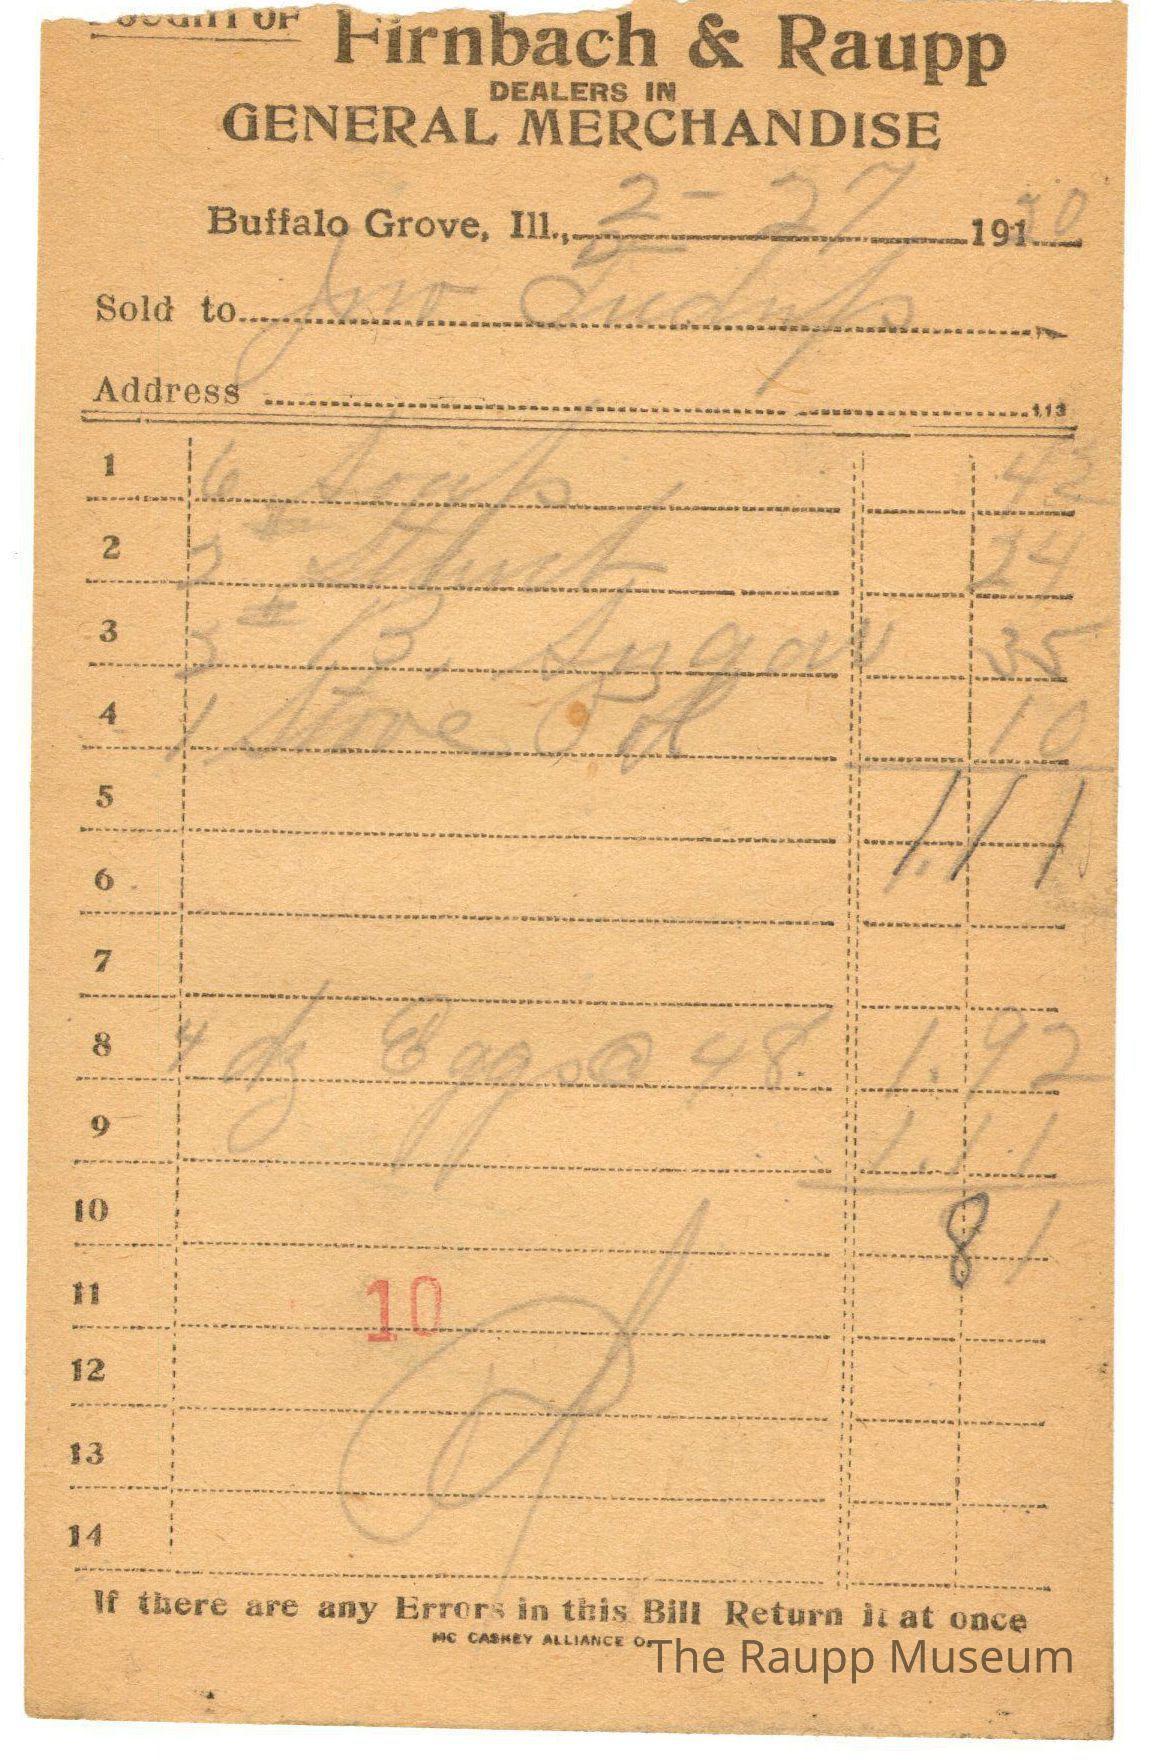 BOUGHT OF Firnbach & Raupp
DEALERS IN
GENERAL MERCHANDISE
Buffalo Grove, Ill., 2-27 191 20
Sold to Jno
Address
113
1 6 Soap 42
2 3# Starch 24
3 3# B. Sugar 35
4 1 Stove Pol 10
5 1.11
6
7
8 4 dz Eggs @ 48. 1.92
9 1.11
10 81
11 10
12
13
14
If there are any Errors in this Bill Return it at once
MC CASKEY ALLIANCE O.
The Raupp Museum